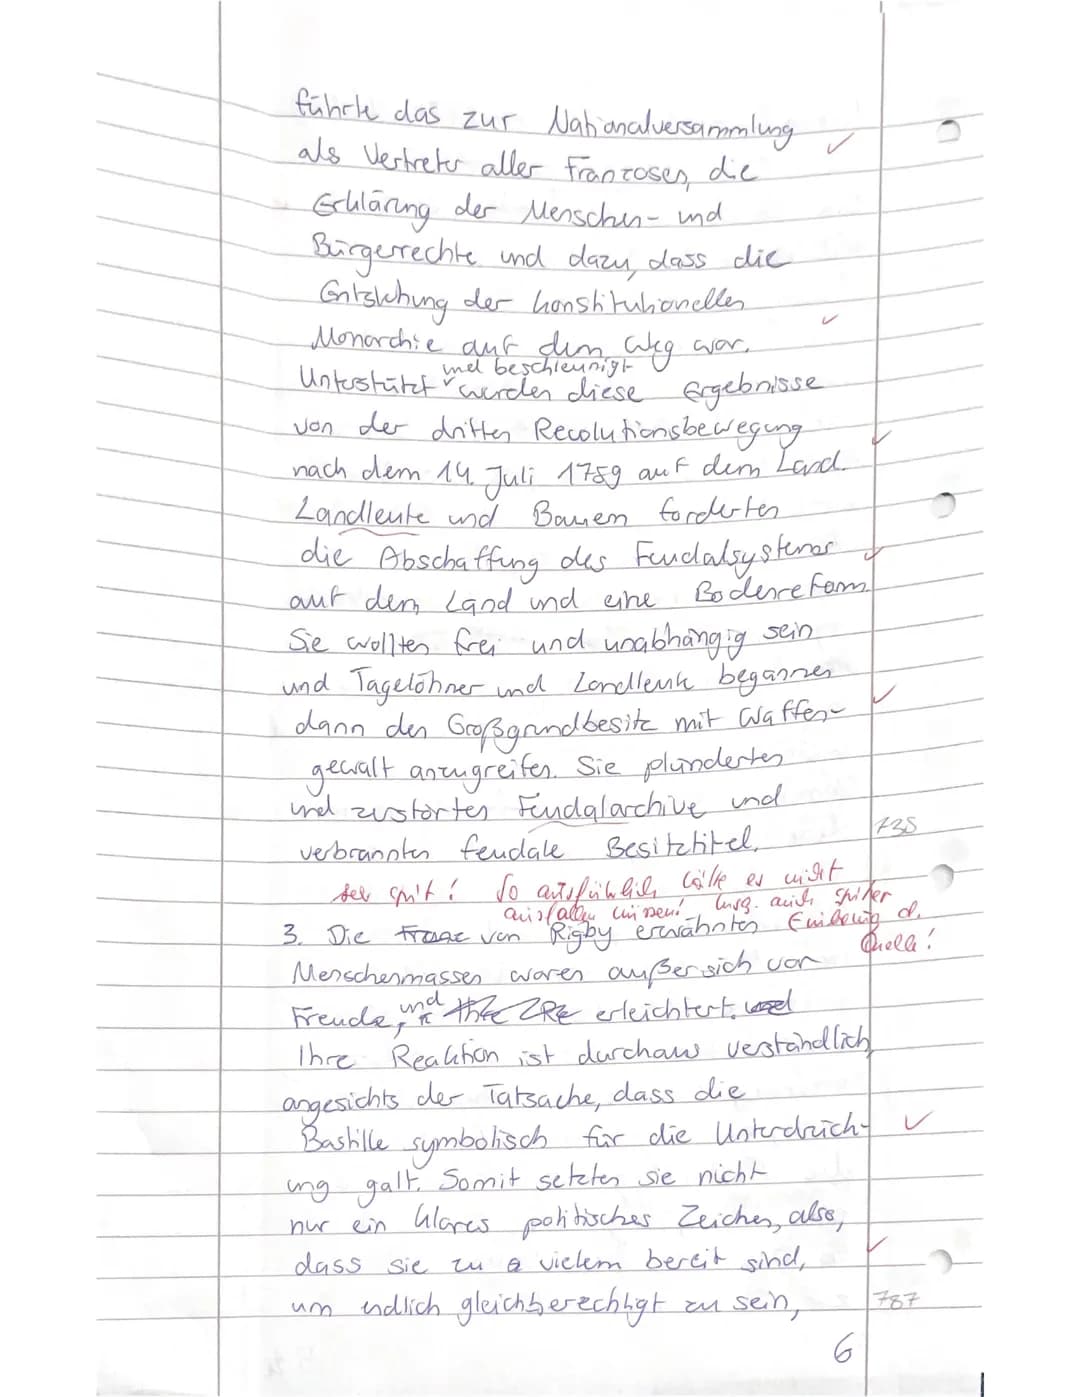 führte das zur Nationalversammlung
als Vertreter aller Franzosen, die
Erklärung der Menschen- und
Bürgerrechte und dazu, dass die
Entstehung der konstitutionellen
Monarchie auf dem Weg war.
und beschleunigt
Unterstützt wurden diese Ergebnisse
von der dritten Revolutionsbewegung
nach dem 14. Juli 1789 auf dem Land.
Landleute und Bauern forderten
die Abschaffung des Feudalsystems
auf dem Land und eine Bodenreform.
Sie wollten frei und unabhängig sein
und Tagelöhner und Landleute begannen
dann den Großgrundbesitz mit Waffen-
gewalt anzugreifen. Sie plünderten
und zerstörten Feudalarchive und
verbrannten feudale Besitztitel.
735
sehr gut! So ausführlich hätte es nicht
ausfallen müssen! Insg. auch später
Einbettung d.
Quelle!
3. Die von Rigby erwähnten
Menschenmassen waren außer sich vor
Freude, und erleichtert.
Ihre Reaktion ist durchaus verständlich
angesichts der Tatsache, dass die
Bastille symbolisch für die Unterdrück-
ung galt. Somit setzten sie nicht
nur ein klares politisches Zeichen, also,
dass sie zu vielem bereit sind,
um endlich gleichberechtigt zu sein,
787
6